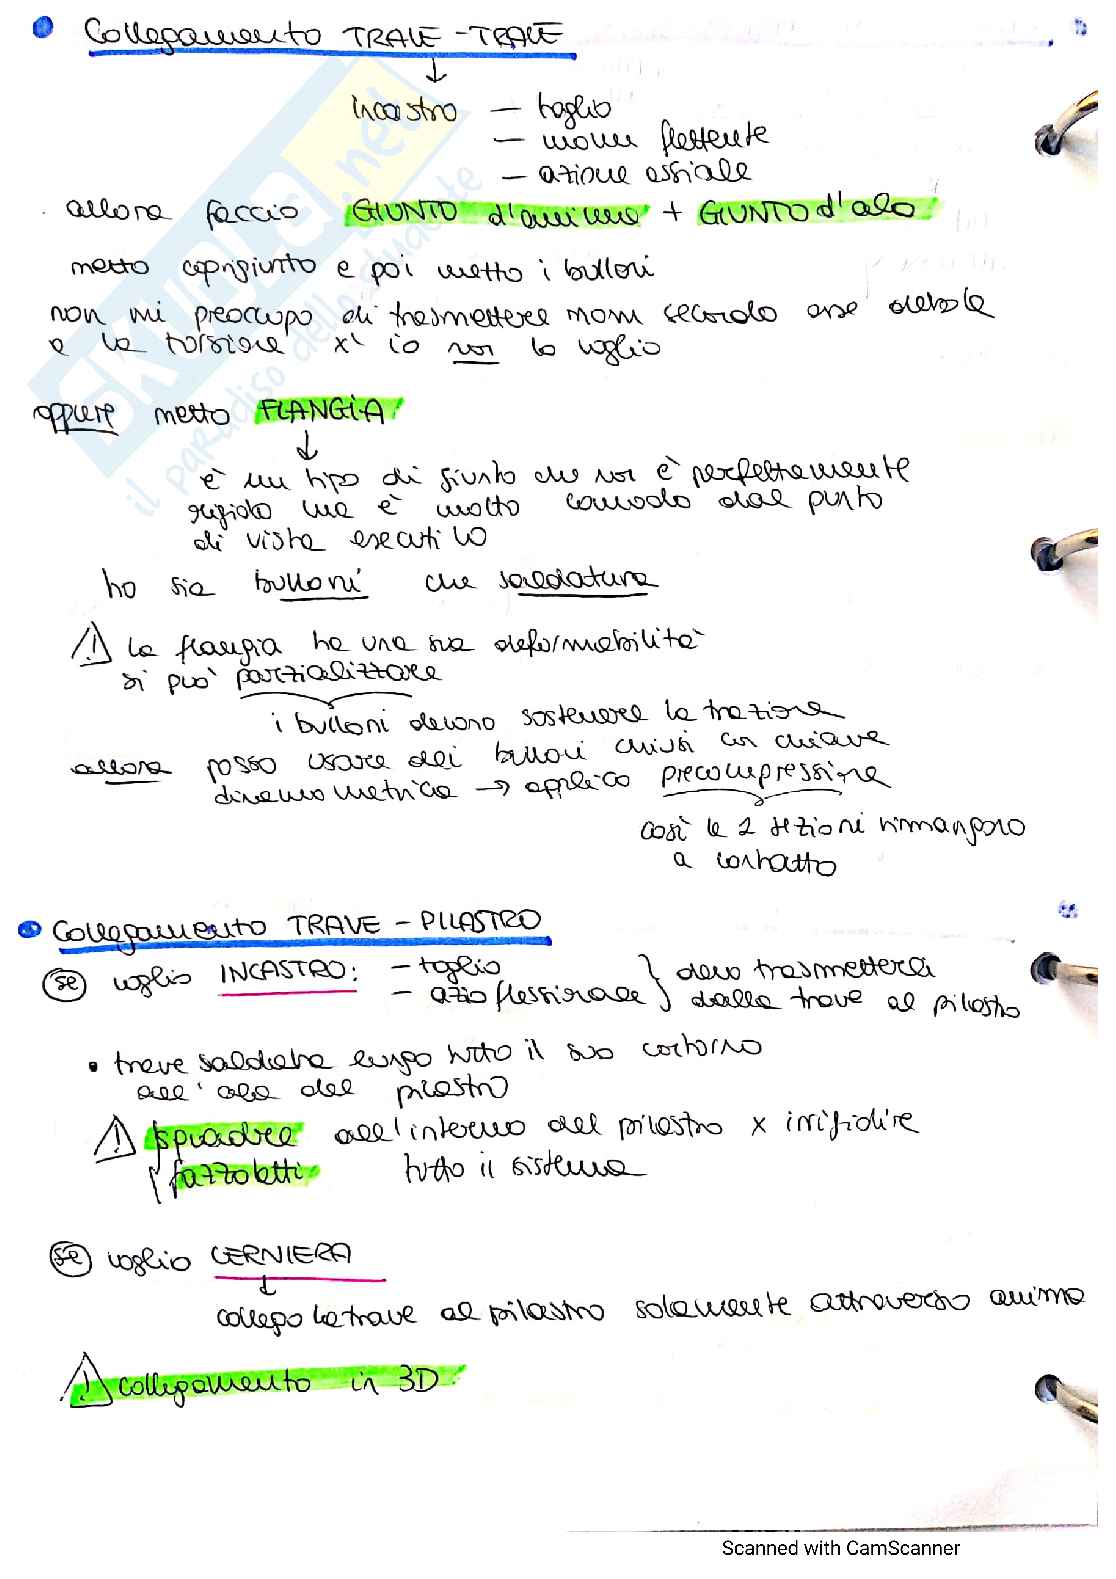 Collegamento TRAVE - TRAVE
↓
incastro — taglio
— mom flettente
— azione assiale
allora faccio GIUNTO d'anima + GIUNTO d'ala
metto coprigiunto e poi metto i bulloni
non mi preoccupo di trasmettere mom secondo asse debole
e la torsione x' io non lo voglio
oppure metto FLANGIA!
↓
è un tipo di giunto che non è perfettamente
rigido ma è molto comodo dal punto
di vista esecutivo
ho sia bulloni che saldatura
⚠ la flangia ha una sua deformabilità
si può parzializzare
i bulloni devono sostenere la trazione
allora posso usare dei bulloni chiusi con chiave
dinamometrica → applico precompressione
così le 2 sezioni rimangono
a contatto
Collegamento TRAVE - PILASTRO
se voglio INCASTRO: — taglio } devo trasmetterli
— azioflessionale } dalla trave al pilastro
• trave saldata lungo tutto il suo contorno
all'ala del pilastro
⚠ squadre all'interno del pilastro x irrigidire
fazzoletti tutto il sistema
se voglio CERNIERA
↓
collego la trave al pilastro solamente attraverso anima
⚠ collegamento in 3D!
SKUOLA.net
il paradiso dello studente
Scanned with CamScanner